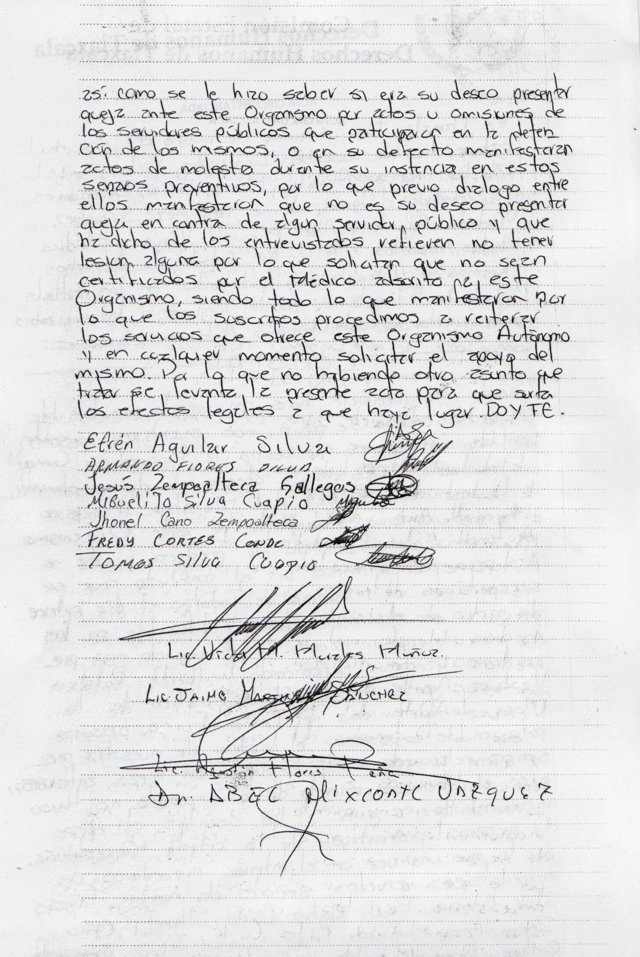 así como se le hizo saber si era su deseo presentar
queja ante este Organismo por actos u omisiones de
los servidores públicos que participaron en la deten
ción de los mismos, o en su defecto manifestaran
actos de molestia durante su instancia en estos
separos preventivos, por lo que previo dialogo entre
ellos manifestaron que no es su deseo presentar
queja en contra de algun servidor público y que
ha dicho de los entrevistados refieren no tener
lesion alguna por lo que solicitan que no sean
certificados por el Médico adscrito a este
Organismo, siendo todo lo que manifestaron por
lo que los suscritos procedimos a reiterar
los servicios que ofrece este Organismo Autónomo
y en cualquier momento solicitar el apoyo del
mismo. Por lo que no habiendo otro asunto que
tratar se levanta la presente acta para que surta
los efectos legales a que haya lugar. DOY FE.
Efrén Aguilar Silva
ARMANDO FLORES SILVA
Jesús Zempoalteca Gallegos
MIGUELITO SILVA CUAPIO
Jhonel Cano Zempoalteca
FREDY CORTES CONDE
TOMAS SILVA CUAPIO
Lic. M. Muñoz
LIC. JAIME SANCHEZ
Lic. Agustin Flores Peña
Dr. ABEL MIXCOATL VAZQUEZ